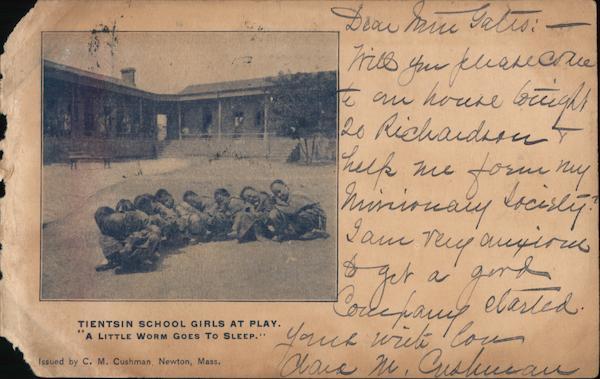 Dear Miss Gates: —
Will you please come
to our house tonight
20 Richardson &
help me form my
Missionary Society?
I am very anxious
to get a good
Company started.
Yours with love
Clara M. Cushman
TIENTSIN SCHOOL GIRLS AT PLAY.
"A LITTLE WORM GOES TO SLEEP."
Issued by C. M. Cushman, Newton, Mass.